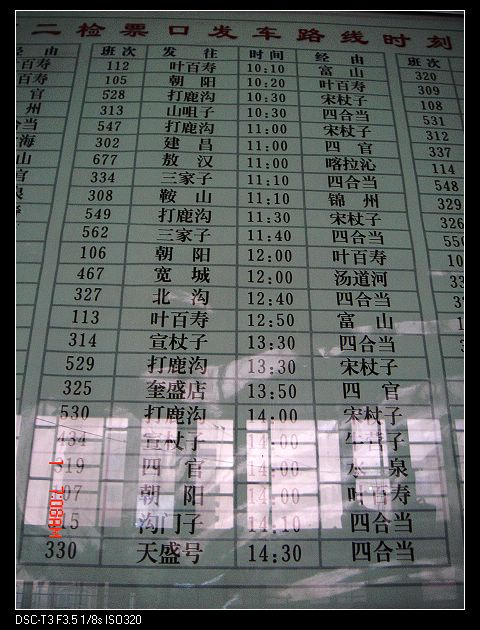 二检票口发车路线时刻
经 由 班次 发 往 时间 经 由 班次
百寿 112 叶百寿 10:10 富 山 320
百寿 105 朝 阳 10:20 叶百寿 309
官 528 打鹿沟 10:30 宋杖子 108
州 313 山咀子 10:30 四合当 531
当 547 打鹿沟 11:00 宋杖子 312
海 302 建 昌 11:00 四 官 337
山 677 敖 汉 11:00 喀拉沁 114
官 334 三家子 11:10 四合当 548
泉 308 鞍 山 11:10 锦 州 329
549 打鹿沟 11:30 宋杖子 326
562 三家子 11:40 四合当 550
106 朝 阳 12:00 叶百寿 10
467 宽 城 12:00 汤道河 33
327 北 沟 12:40 四合当 3
113 叶百寿 12:50 富 山 1
314 宣杖子 13:30 四合当
529 打鹿沟 13:30 宋杖子
325 奎盛店 13:50 四 官
530 打鹿沟 14:00 宋杖子
434 宣杖子 14:00 子
319 四 官 14:00 水 泉
07 朝 阳 14:00 叶百寿
5 沟门子 14:10 四合当
330 天盛号 14:30 四合当
DSC-T3 F3.5 1/8s ISO320